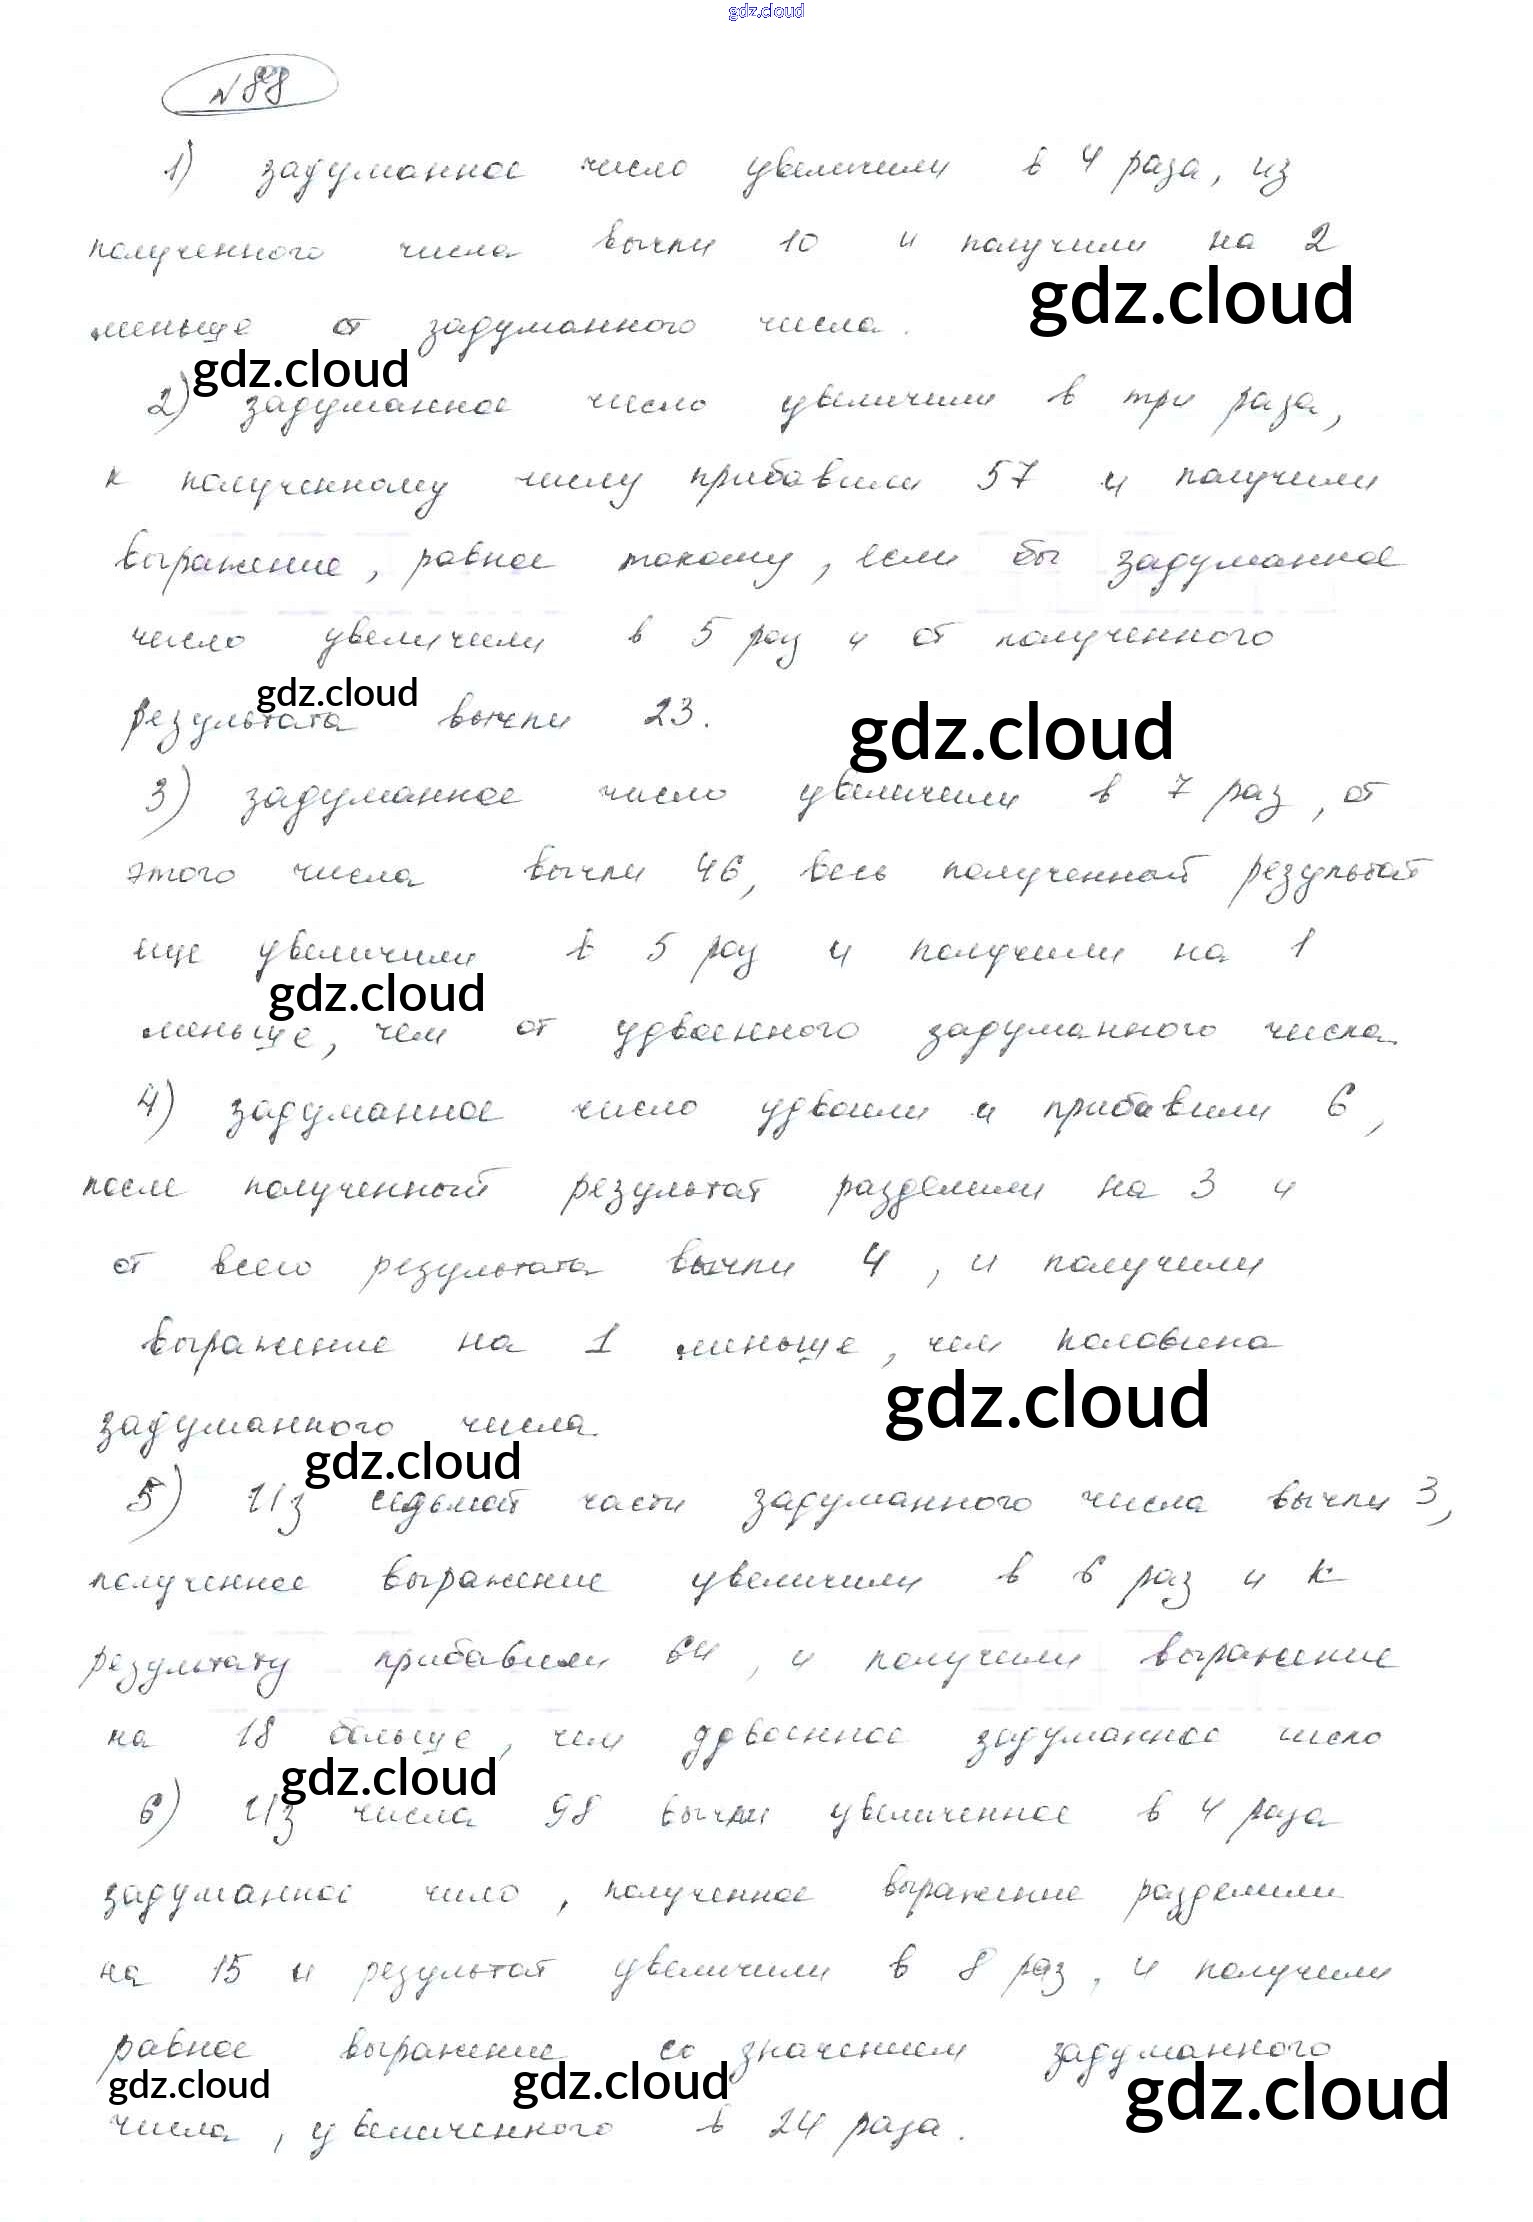 gdz.cloud
№ 88
1) задуманное число увеличили в 4 раза, из
полученного числа вычли 10 и получили на 2
меньше от задуманного числа.
gdz.cloud
gdz.cloud
2) задуманное число увеличили в три раза,
к полученному числу прибавили 57 и получили
выражение, равное такому, если бы задуманное
число увеличили в 5 раз и от полученного
gdz.cloud
результата вычли 23.
gdz.cloud
3) задуманное число увеличили в 7 раз, от
этого числа вычли 46, весь полученный результат
еще увеличили в 5 раз и получили на 1
gdz.cloud
меньше, чем от удвоенного задуманного числа.
4) задуманное число удвоили и прибавили 6,
после полученный результат разделили на 3 и
от всего результата вычли 4, и получили
выражение на 1 меньше, чем половина
gdz.cloud
задуманного числа.
gdz.cloud
5) Из седьмой части задуманного числа вычли 3,
полученное выражение увеличили в 6 раз и к
результату прибавили 64, и получили выражение
на 18 больше, чем удвоенное задуманное число
gdz.cloud
6) Из числа 98 вычли увеличенное в 4 раза
задуманное чило, полученное выражение разделили
на 15 и результат увеличили в 8 раз, и получили
равное выражение со значением задуманного
gdz.cloud gdz.cloud gdz.cloud
числа, увеличенного в 24 раза.